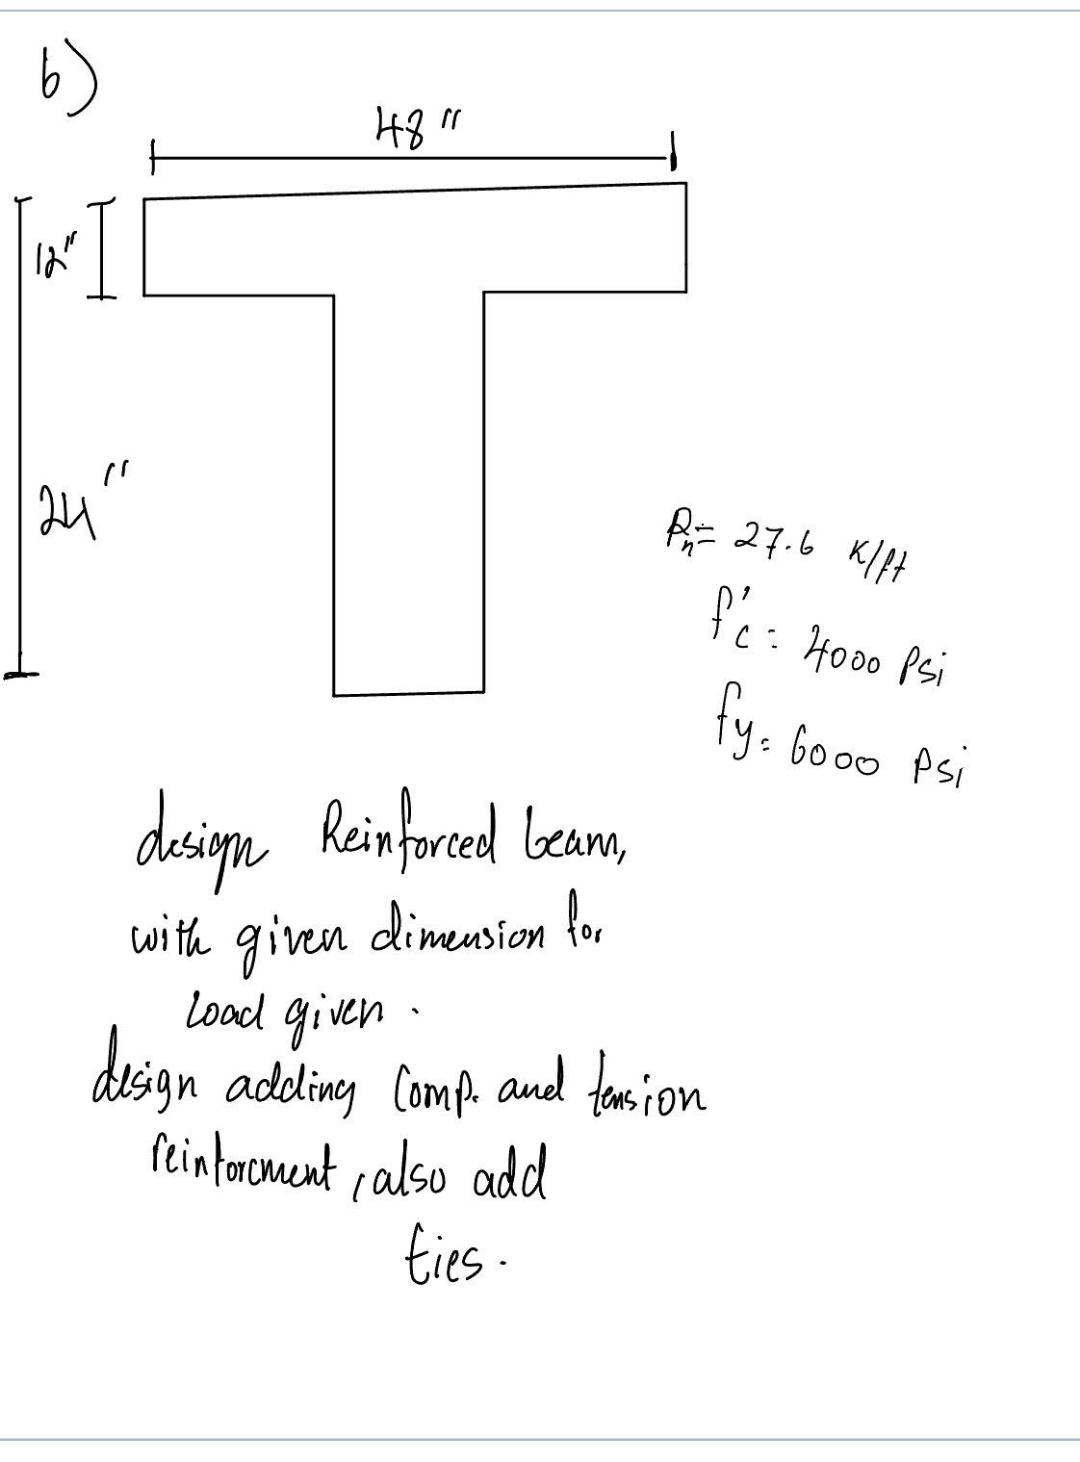 b)
48"
12"
24"
Pn = 27.6 K/ft
f'c = 4000 Psi
fy = 6000 Psi
design Reinforced beam,
with given dimension for
Load given.
design adding Comp. and tension
reinforcment, also add
ties.